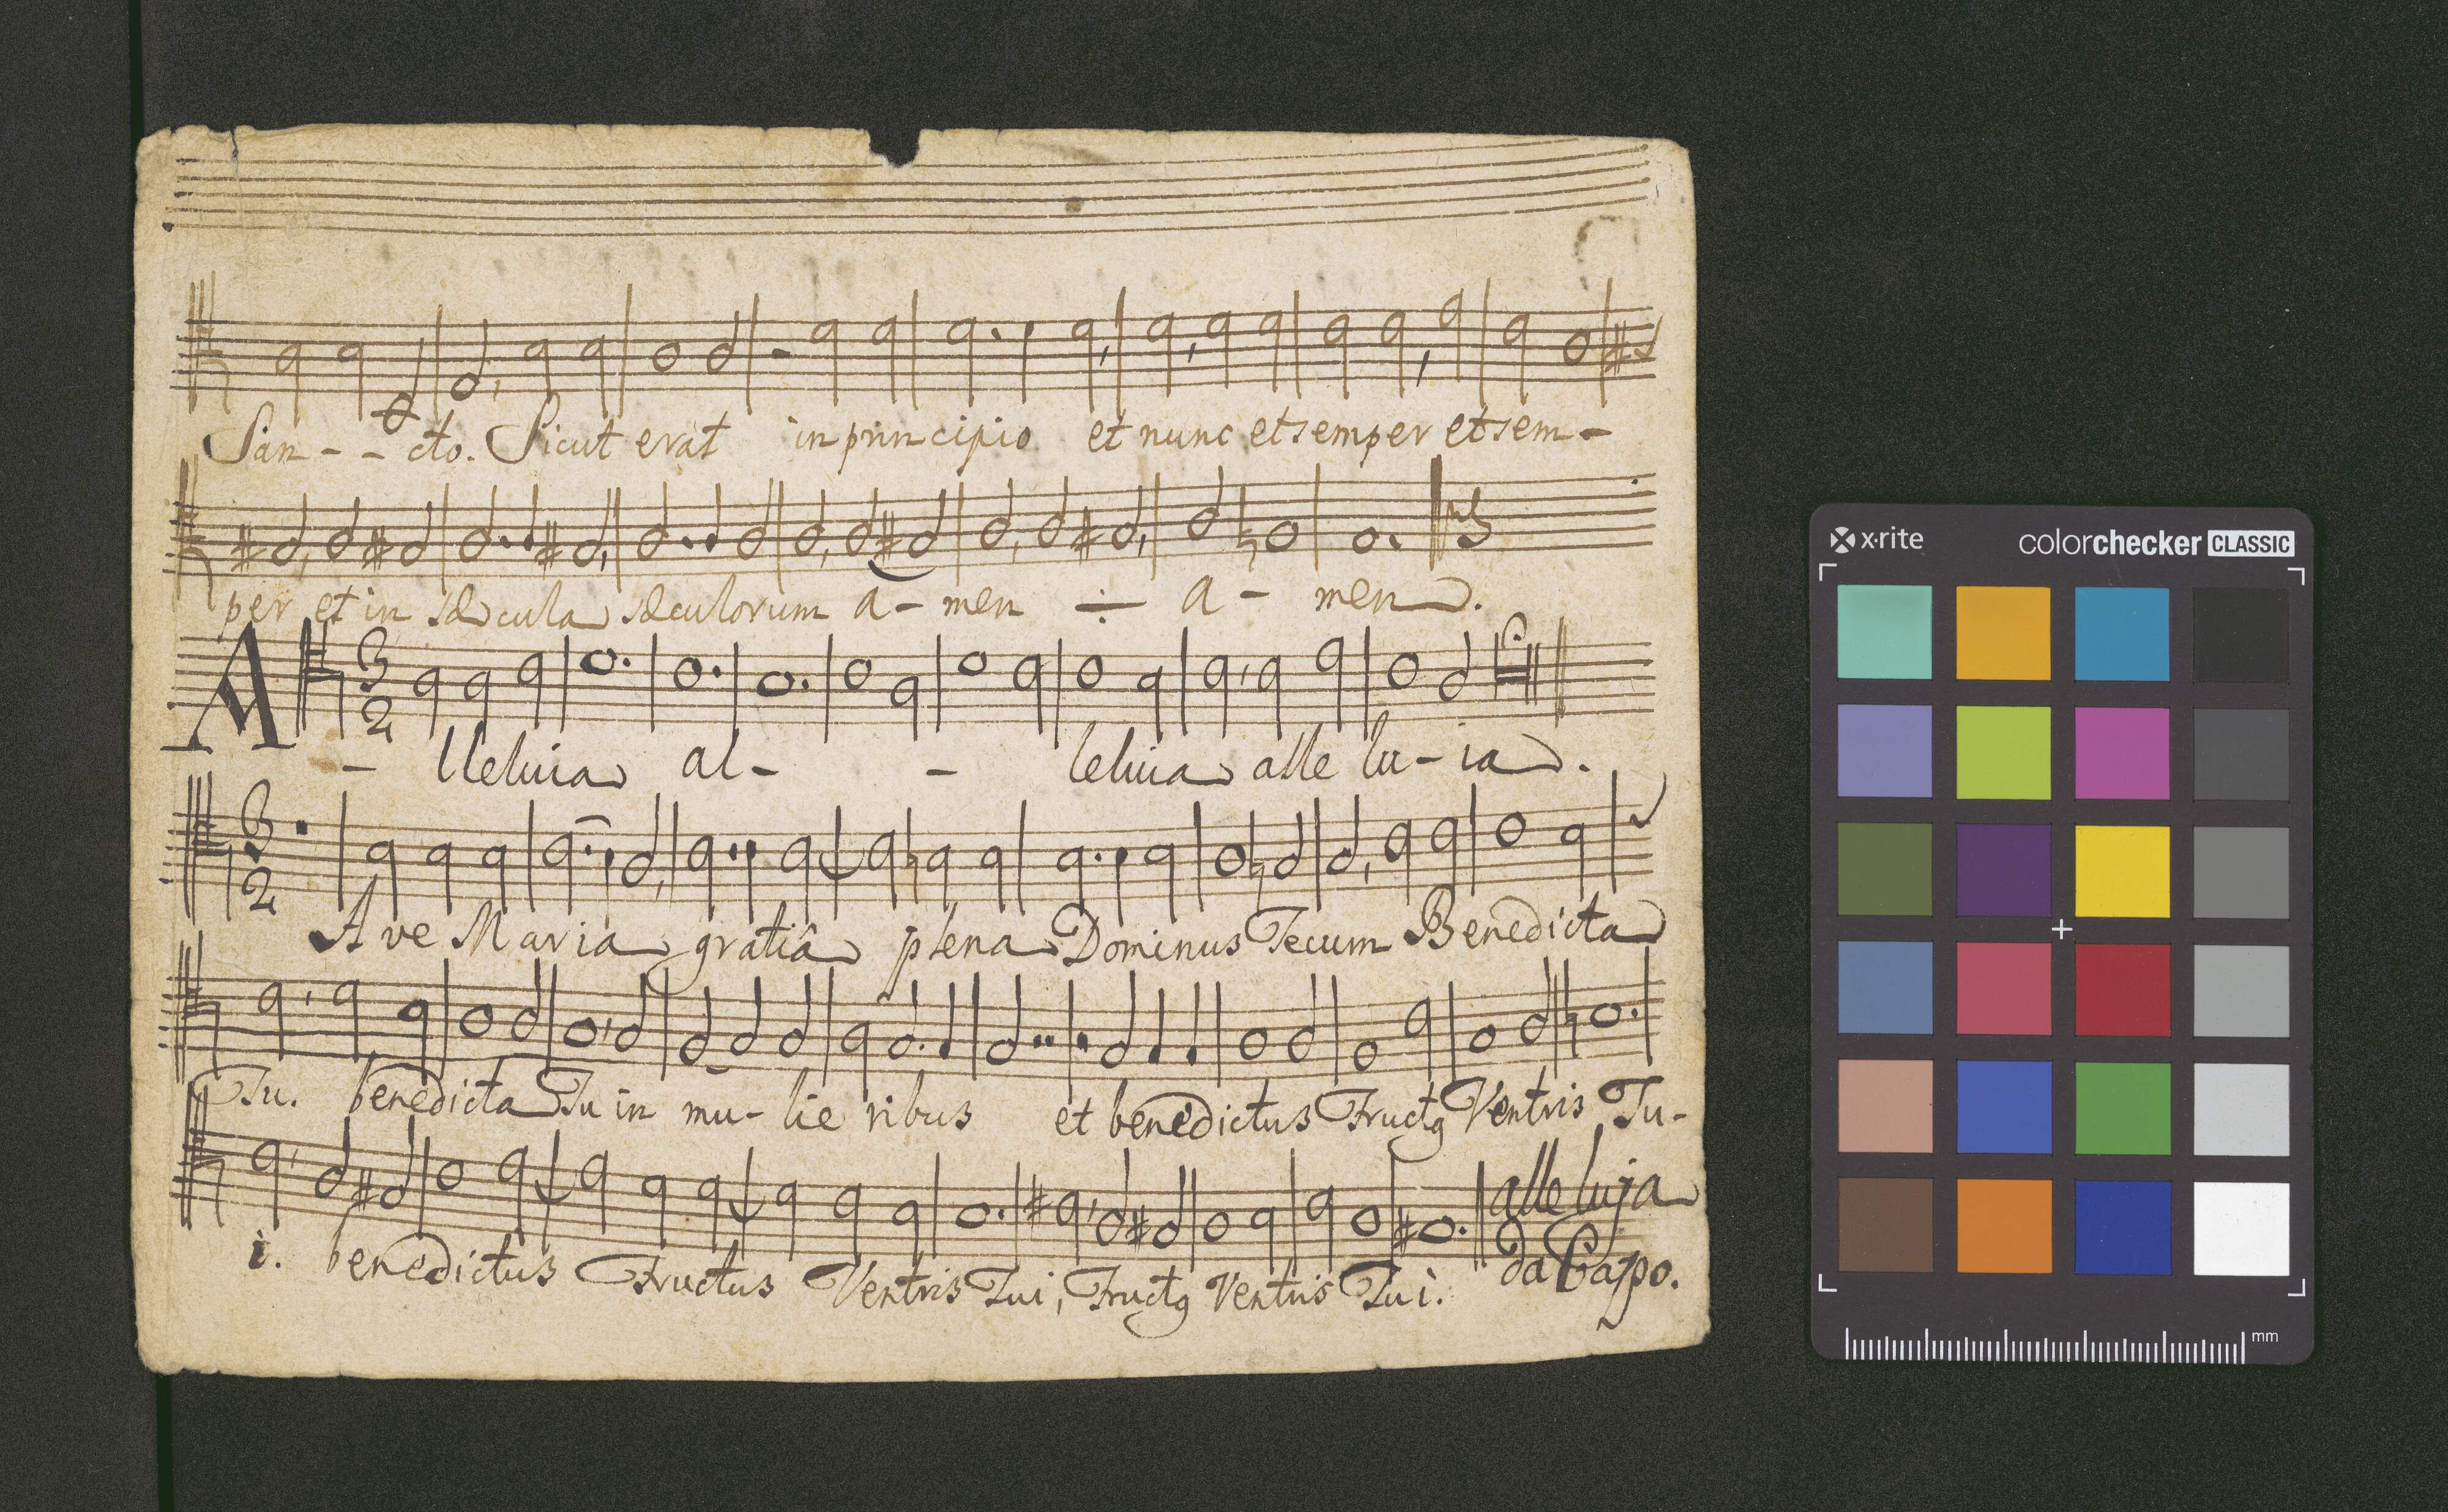 San - - cto. Sicut erat in principio et nunc et semper et sem-
per et in sæcula sæculorum a - men ÷ a - men.
3
2
A - lleluia al - - leluia alle lu - ia.
3
2
Ave Maria gratiâ plena Dominus Tecum Benedicta
Tu. benedicta Tu in mu - lie ribus et benedictus Fructꝰ Ventris Tu-
i. benedictus Fructus Ventris Tui, Fructꝰ Ventris Tui. alleluja
da Capo.
x·rite colorchecker CLASSIC
mm